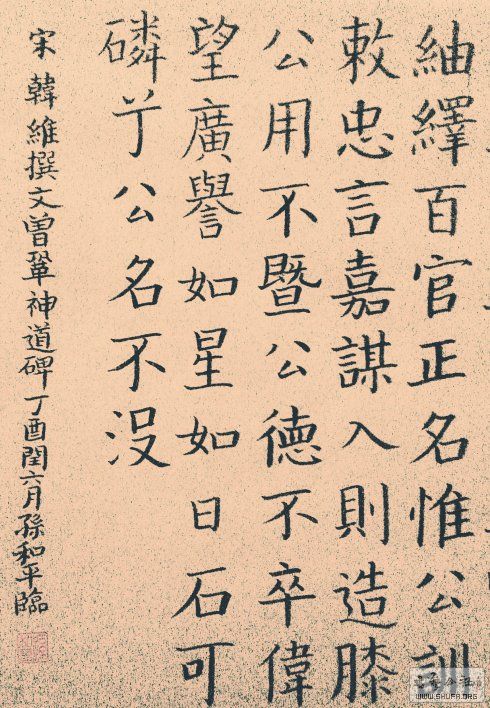 紬繹百官正名惟公訓
敕忠言嘉謀入則造膝
公用不暨公德不卒偉
望廣譽如星如日石可
磷丁公名不没
宋韓維撰文曾鞏神道碑丁酉閏六月孫和平臨
WWW.SHUFA.ORG